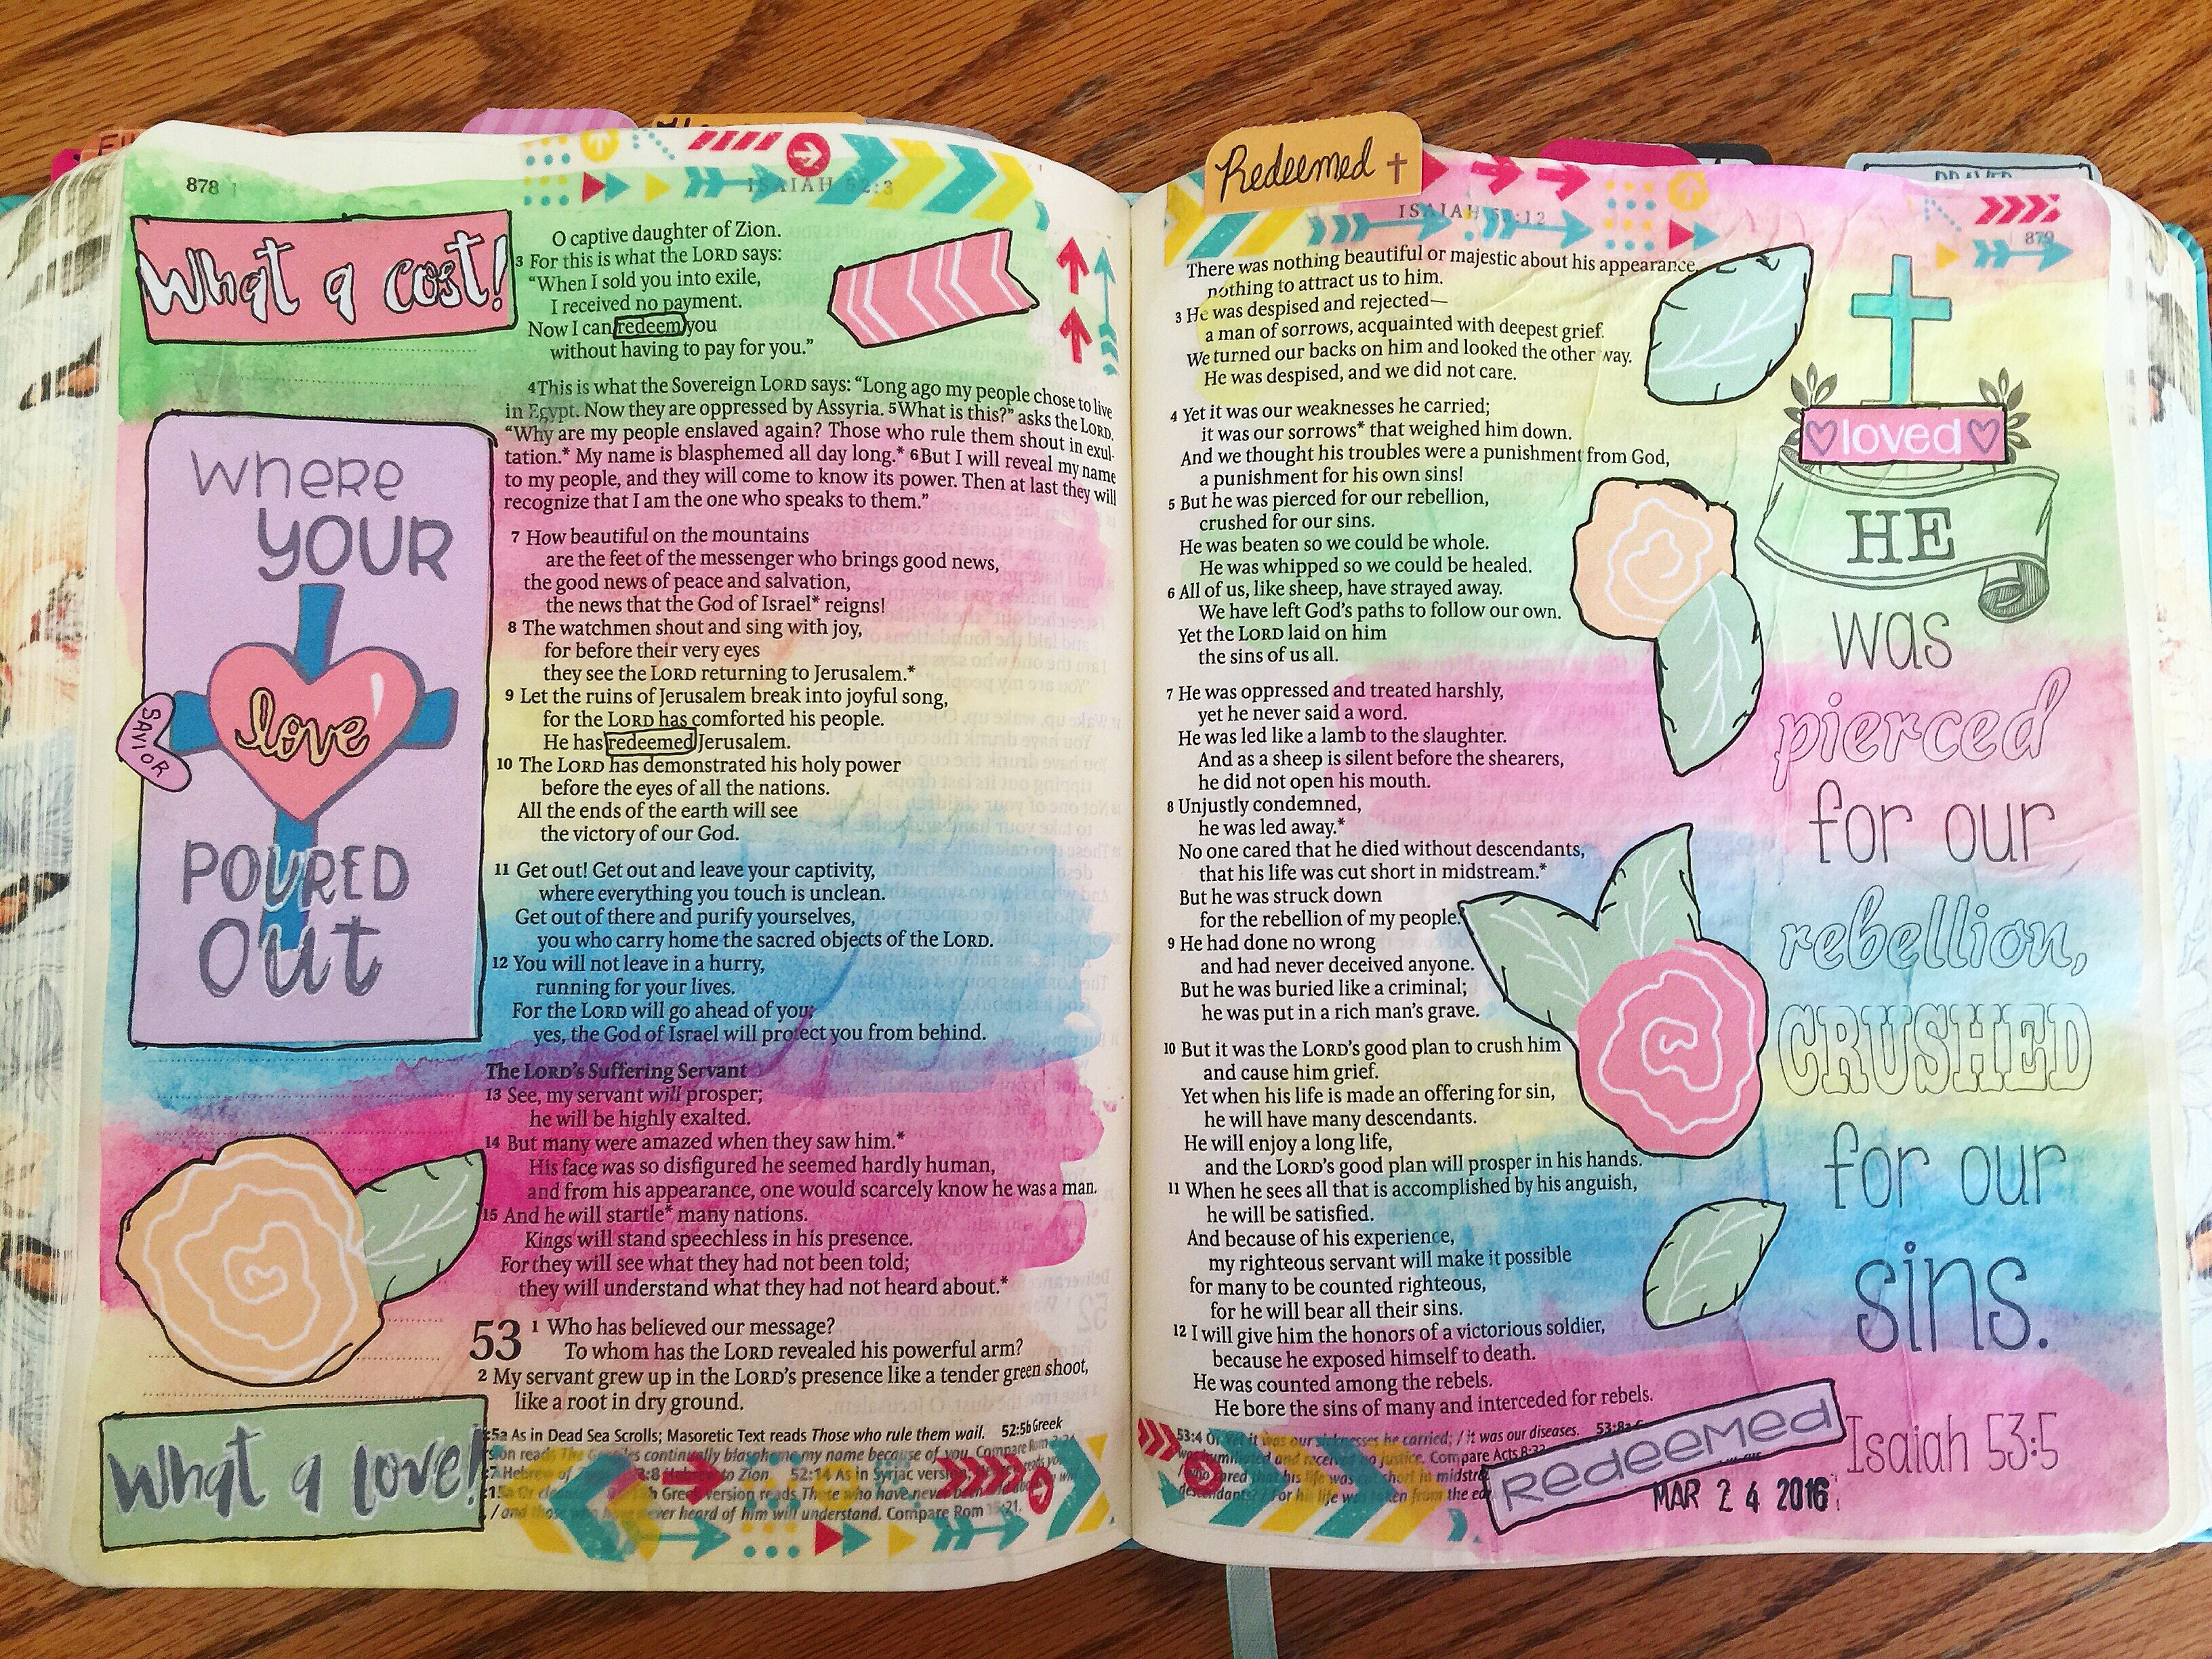 Redeemed
878
ISAIAH 52:3
What a cost!
O captive daughter of Zion.
3 For this is what the LORD says:
“When I sold you into exile,
I received no payment.
Now I can redeem you
without having to pay for you.”
4 This is what the Sovereign LORD says: “Long ago my people chose to live
in Egypt. Now they are oppressed by Assyria. 5 What is this?” asks the LORD.
“Why are my people enslaved again? Those who rule them shout in exul-
tation.* My name is blasphemed all day long.* 6 But I will reveal my name
to my people, and they will come to know its power. Then at last they will
recognize that I am the one who speaks to them.”
7 How beautiful on the mountains
are the feet of the messenger who brings good news,
the good news of peace and salvation,
the news that the God of Israel* reigns!
8 The watchmen shout and sing with joy,
for before their very eyes
they see the LORD returning to Jerusalem.*
9 Let the ruins of Jerusalem break into joyful song,
for the LORD has comforted his people.
He has redeemed Jerusalem.
10 The LORD has demonstrated his holy power
before the eyes of all the nations.
All the ends of the earth will see
the victory of our God.
11 Get out! Get out and leave your captivity,
where everything you touch is unclean.
Get out of there and purify yourselves,
you who carry home the sacred objects of the LORD.
12 You will not leave in a hurry,
running for your lives.
For the LORD will go ahead of you;
yes, the God of Israel will protect you from behind.
The LORD’s Suffering Servant
13 See, my servant will prosper;
he will be highly exalted.
14 But many were amazed when they saw him.*
His face was so disfigured he seemed hardly human,
and from his appearance, one would scarcely know he was a man.
15 And he will startle* many nations.
Kings will stand speechless in his presence.
For they will see what they had not been told;
they will understand what they had not heard about.*
53 1 Who has believed our message?
To whom has the LORD revealed his powerful arm?
2 My servant grew up in the LORD’s presence like a tender green shoot,
like a root in dry ground.
5a As in Dead Sea Scrolls; Masoretic Text reads Those who rule them wail. 52:5b Greek
reads The continually blaspheme my name because of you. Compare Rom
Hebrew of to Zion 52:14 As in Syriac version;
Greek version reads Those who have never been
/ and those ever heard of him will understand. Compare Rom 15:21.
where
YOUR
love
SAVIOR
POURED
OUT
What a love!
ISAIAH 53:12
879
There was nothing beautiful or majestic about his appearance,
nothing to attract us to him.
3 He was despised and rejected—
a man of sorrows, acquainted with deepest grief.
We turned our backs on him and looked the other way.
He was despised, and we did not care.
4 Yet it was our weaknesses he carried;
it was our sorrows* that weighed him down.
And we thought his troubles were a punishment from God,
a punishment for his own sins!
5 But he was pierced for our rebellion,
crushed for our sins.
He was beaten so we could be whole.
He was whipped so we could be healed.
6 All of us, like sheep, have strayed away.
We have left God’s paths to follow our own.
Yet the LORD laid on him
the sins of us all.
7 He was oppressed and treated harshly,
yet he never said a word.
He was led like a lamb to the slaughter.
And as a sheep is silent before the shearers,
he did not open his mouth.
8 Unjustly condemned,
he was led away.*
No one cared that he died without descendants,
that his life was cut short in midstream.*
But he was struck down
for the rebellion of my people.
9 He had done no wrong
and had never deceived anyone.
But he was buried like a criminal;
he was put in a rich man’s grave.
10 But it was the LORD’s good plan to crush him
and cause him grief.
Yet when his life is made an offering for sin,
he will have many descendants.
He will enjoy a long life,
and the LORD’s good plan will prosper in his hands.
11 When he sees all that is accomplished by his anguish,
he will be satisfied.
And because of his experience,
my righteous servant will make it possible
for many to be counted righteous,
for he will bear all their sins.
12 I will give him the honors of a victorious soldier,
because he exposed himself to death.
He was counted among the rebels.
He bore the sins of many and interceded for rebels.
53:4 Or Yet it was our sicknesses he carried; / it was our diseases. 53:8a
humiliated and received no justice. Compare Acts 8:33
that his life was short in
/ For his life was taken from the
loved
HE
was
pierced
for our
rebellion,
CRUSHED
for our
sins.
Isaiah 53:5
Redeemed
MAR 24 2016